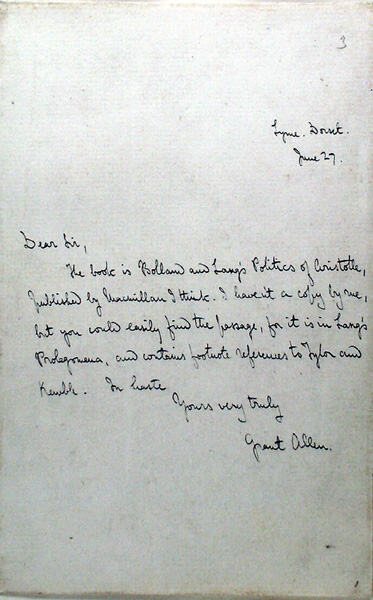 3
Lyme. Dorset.
June 27.
Dear Sir,
The book is Bolland and Lang's Politics of Aristotle,
published by Macmillan I think. I haven't a copy by me,
but you could easily find the passage, for it is in Lang's
Prolegomena, and contains footnote references to Tylor and
Kemble. In haste
Yours very truly
Grant Allen.